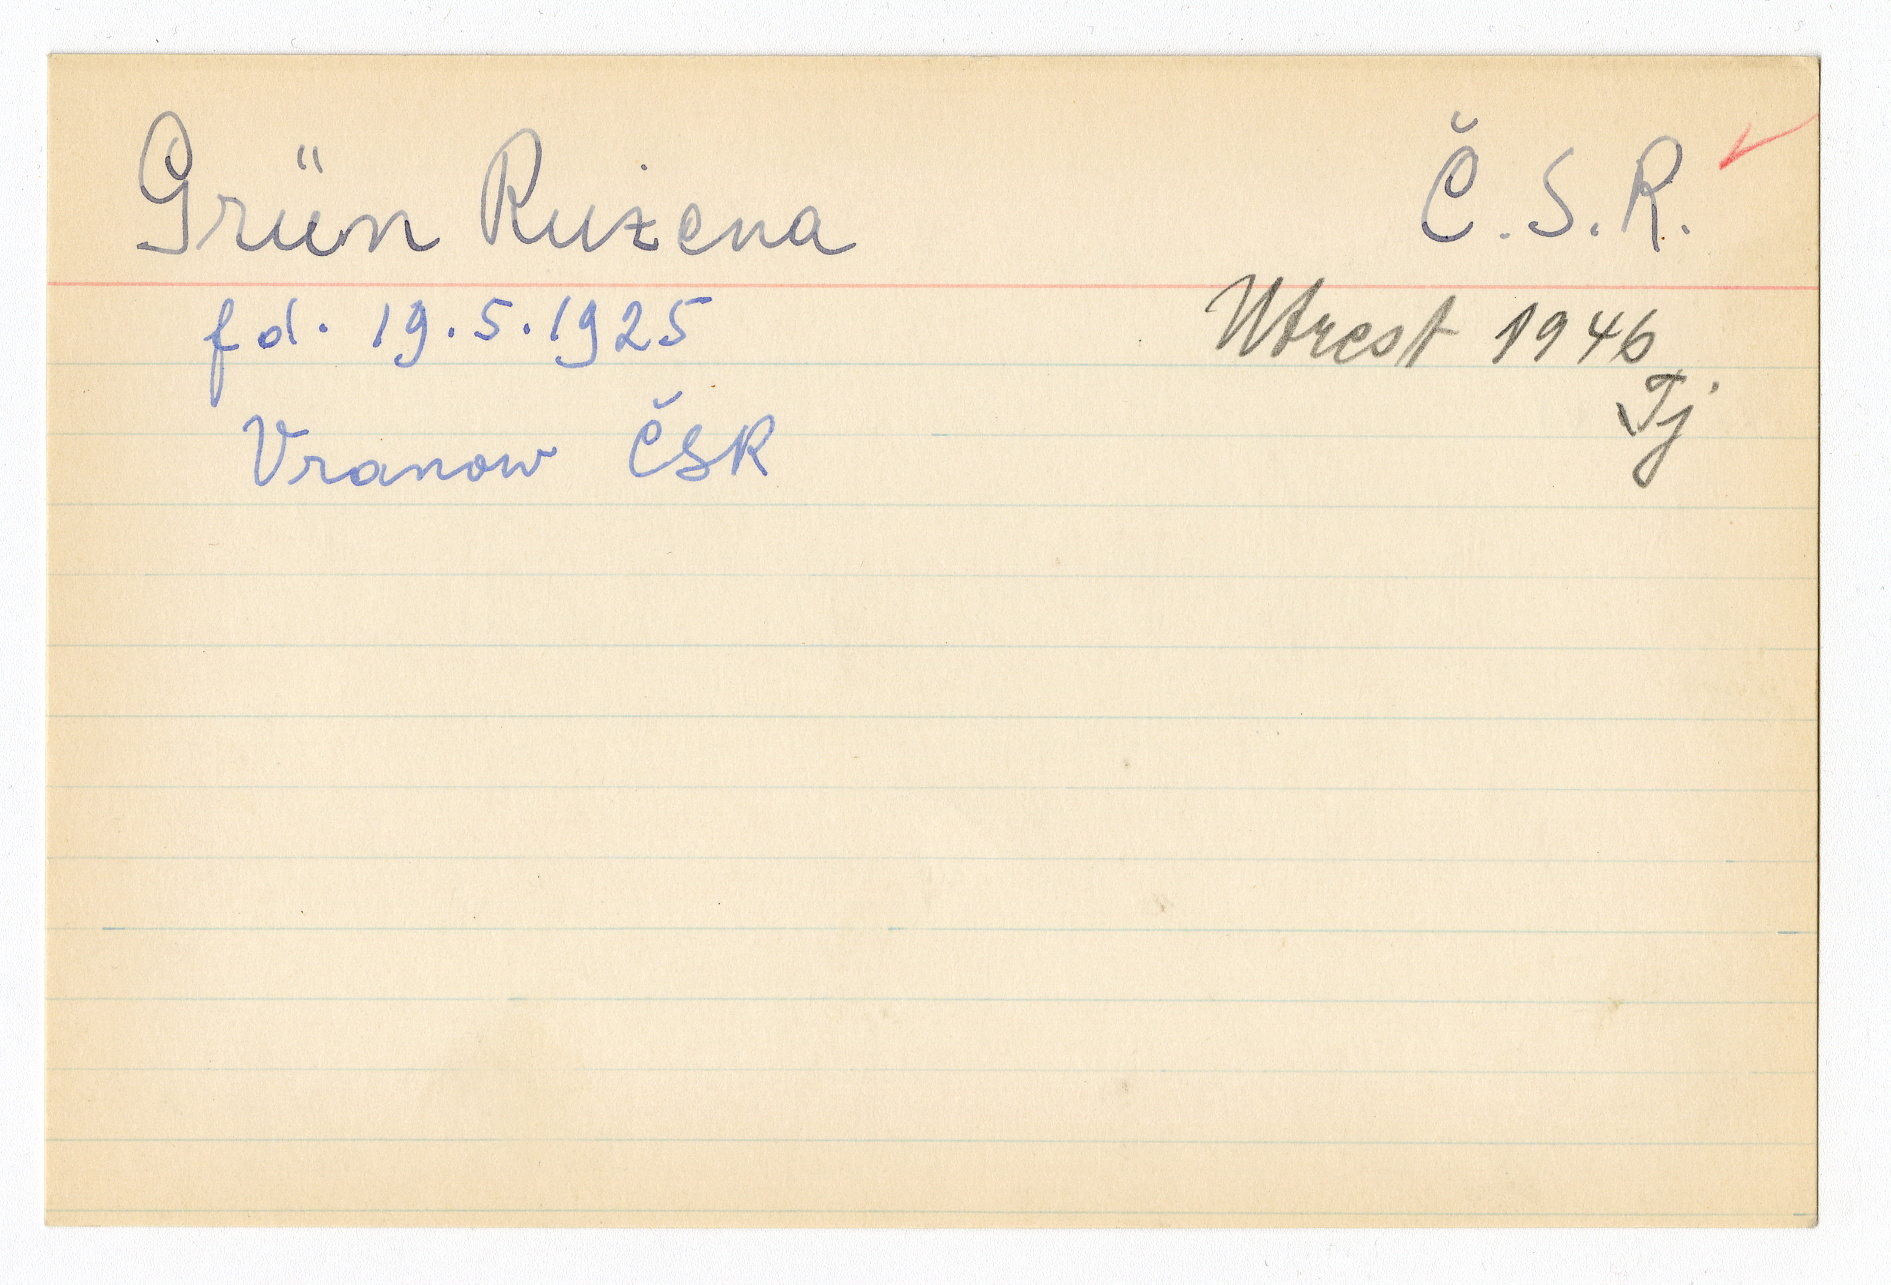 Grün Ružena Č.S.R.
fd. 19.5.1925 Utrest 1946
Tj
Vranow ČSR